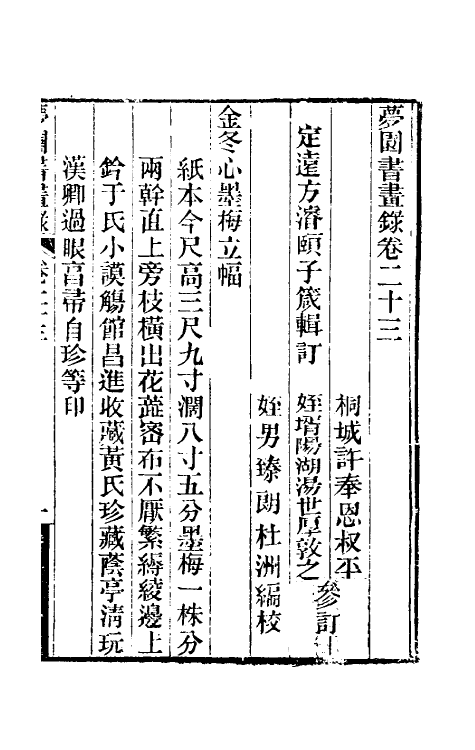 夢園書畫錄卷二十三
桐城許奉恩叔平
定遠方濬頤子箴輯訂 姪壻陽湖湯世厚敦之 參訂
姪男臻朗杜洲編校
金冬心墨梅立幅
紙本今尺高三尺九寸濶八寸五分墨梅一株分
兩幹直上旁枝橫出花蕋密布不厭繁縟綾邊上
鈐于氏小謨觴館昌進收藏黃氏珍藏蔭亭清玩
漢卿過眼亯帚自珍等印
夢園書畫錄 卷二十三 一